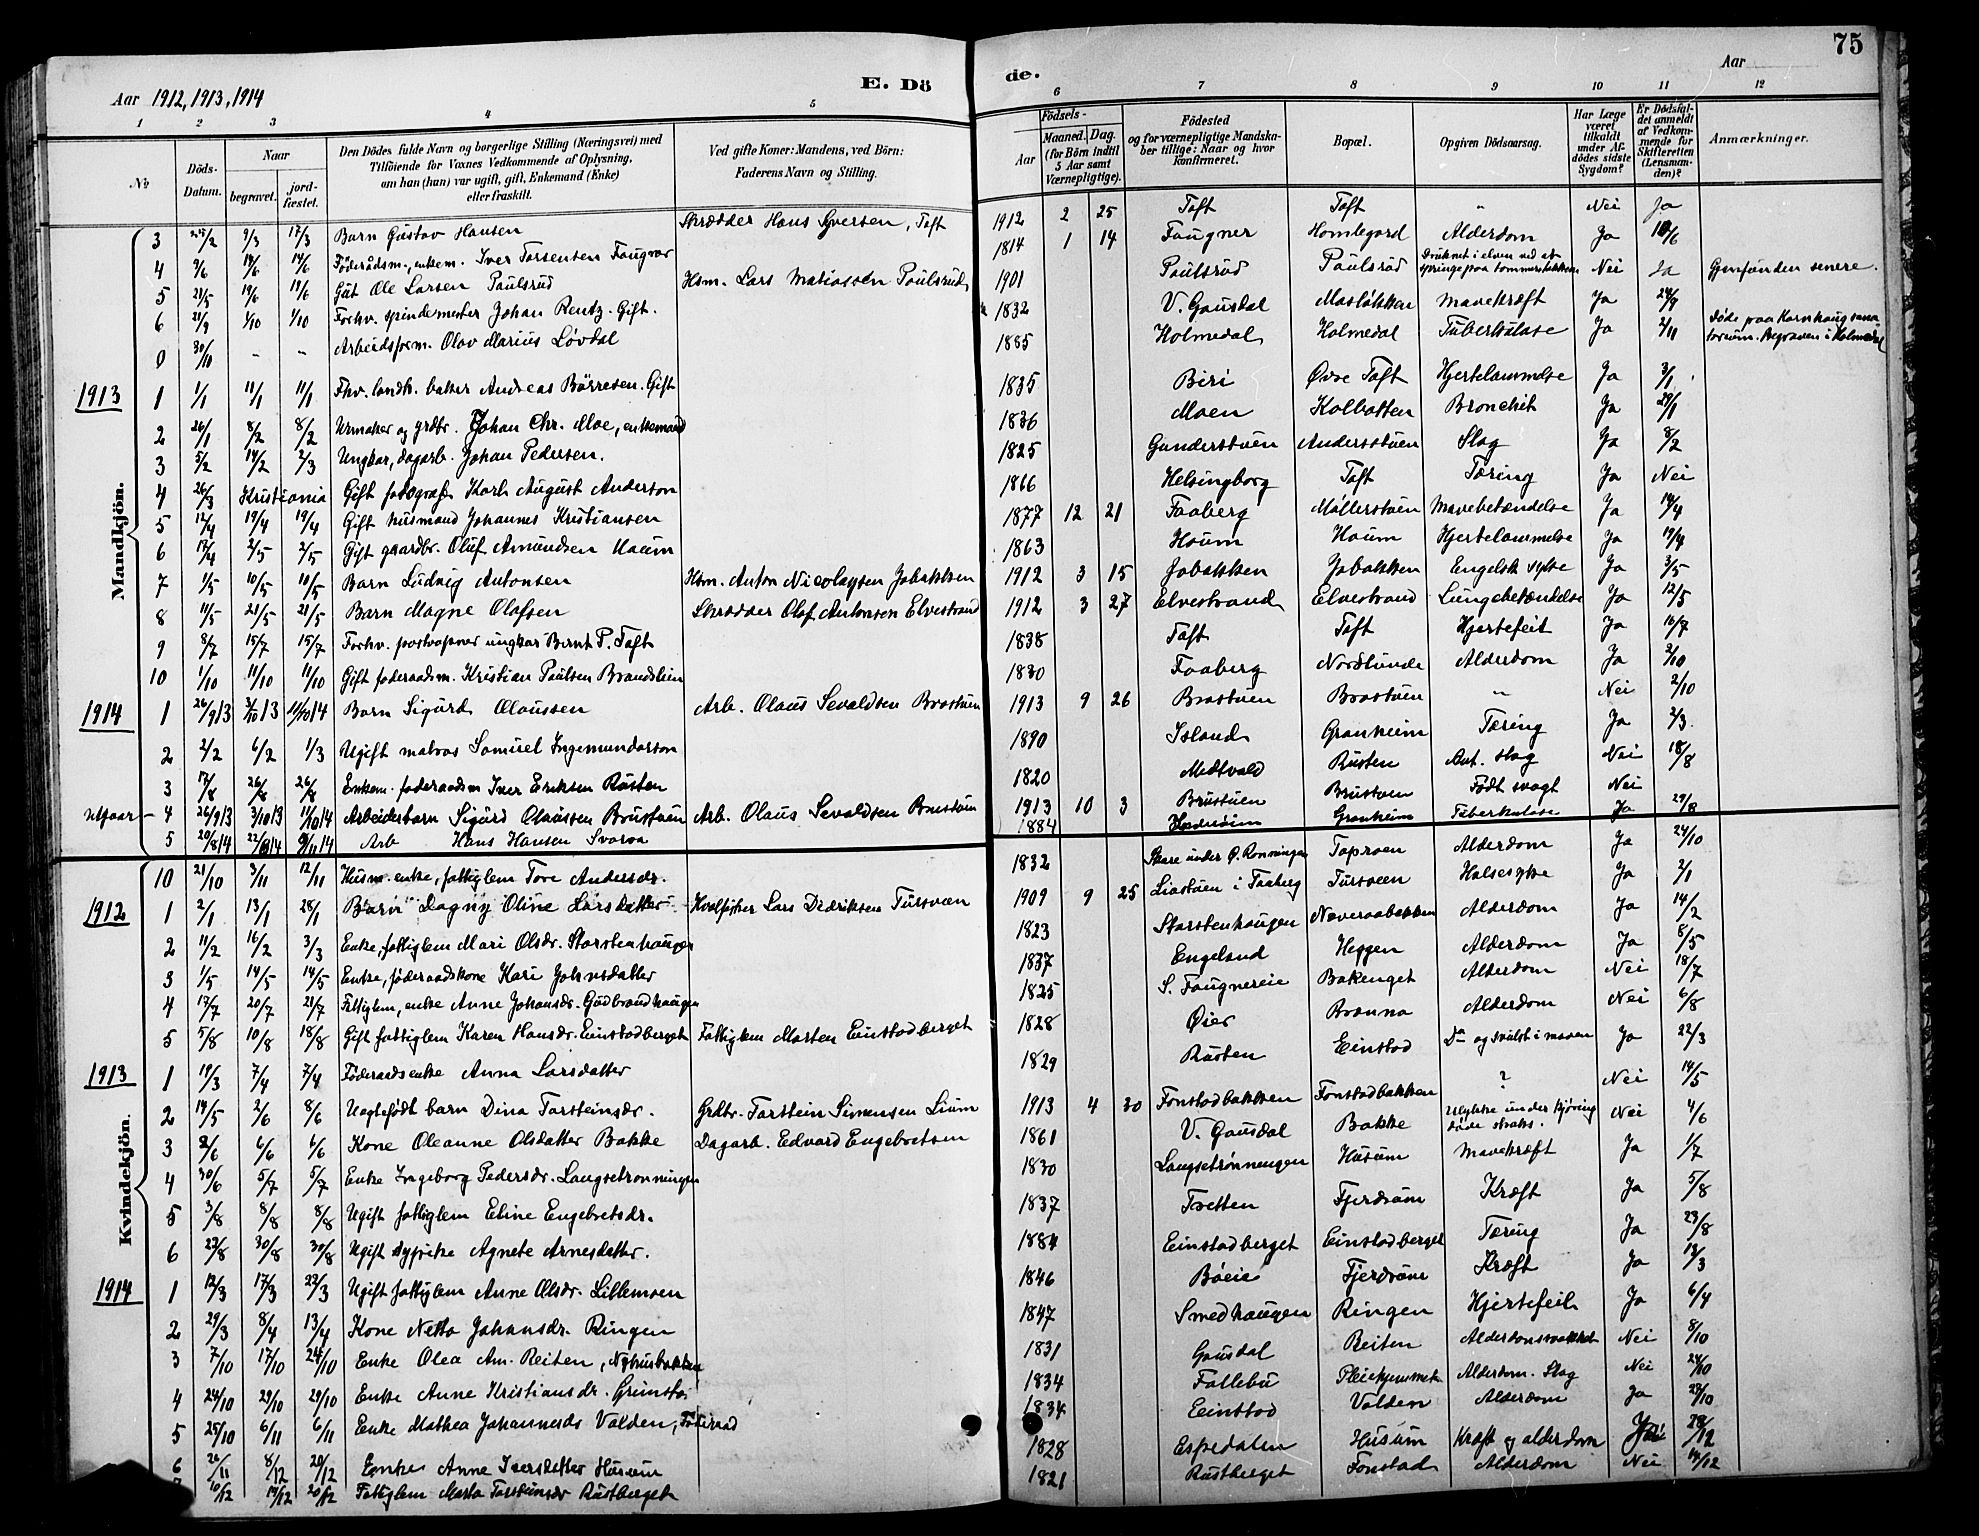 75
E. Dö de.
Aar 1912, 1913, 1914
Aar
1 2 3 4 5 6 7 8 9 10 11 12
No
Döds-Datum.
Naar
begravet.
jord-fæstet.
Den Dödes fulde Navn og borgerlige Stilling (Næringsvei) med
Tilföiende for Voxnes Vedkommende af Oplysning,
om han (hun) var ugift, gift, Enkemand (Enke)
eller fraskilt.
Ved gifte Koner: Mandens, ved Börn:
Faderens Navn og Stilling.
Födsels-
Aar
Maaned. Dag.
(for Börn indtil 5 Aar samt Værnepligtige).
Födested
og for værnepligtige Mandska-
ber tillige: Naar og hvor
konfirmeret.
Bopæl.
Opgiven Dödsaarsag.
Har Læge været tilkaldt under Af-dödes sidste Sygdom?
Er Dödsfal-det anmeldt af Vedkom-mende for Skifteretten (Lensman-den)?
Anmærkninger.
Mandkjön.
3 9/3 17/3 Barn Gustav Hansen Skrædder Hans Syversen, Toft 1912 2 25 Toft Toft " Nei Ja
4 9/6 14/6 14/6 Föderådsm., enkem. Iver Torstensen Faugner 1814 1 14 Faugner Homlegard Alderdom Ja 10/6
5 21/5 19/6 19/6 Gut Ole Larsen Paulsrud Hsm. Lars Matiassen Paulsrud 1901 Paulsrud Paulsrud Druknet i elven ved at springe paa tømmerstokken Nei Ja Gjenfunden senere.
6 21/9 1/10 1/10 Forhv. spindemester Johan Rentz. Gift. 1832 V. Gausdal Masløkken Mavekræft Ja 24/9
0 30/10 - " Arbeidsform. Olav Marius Løvdal 1885 Holmedal Holmedal Tuberkulose Ja 2/11 Døde paa Kornhaug sanatorium. Begraven i Holmedal
1913 1 1/1 11/1 11/1 Fhv. landh. bakker Andreas Börresen. Gift 1835 Biri Øvre Toft Hjertelammelse Ja 3/1
2 26/1 8/2 8/2 Urmaker og grdbr. Johan Chr. Moe, enkemand 1836 Moen Kolbotten Bronchit Ja 29/1
3 5/2 14/2 2/3 Ungkar, dagarb. Johan Pedersen. 1825 Gunderstuen Andersstuen Slag Ja 8/2
4 26/3 Kristiania Gift fotograf Karl August Anderson 1866 Helsingborg Toft Tæring Ja Nei
5 12/4 19/4 19/4 Gift husmand Johannes Kristiansen 1877 12 21 Faaberg Møllerstuen Mavebetændelse Ja 14/4
6 17/4 2/5 2/5 Gift gaardbr. Oluf Amundsen Houm 1863 Houm Houm Hjertelammelse Ja 19/4
7 1/5 10/5 10/5 Barn Ludvig Antonsen Hsm. Anton Nicolaysen Jobakken 1912 3 15 Jobakken Jobakken Engelsk syke Ja 3/5
8 11/5 21/5 21/5 Barn Magne Olafsen Skrædder Olaf Antonsen Elvestrand 1912 3 27 Elvestrand Elvestrand Lungebetændelse Ja 12/5
9 8/7 15/7 15/7 Forhv. postaapner ungkar Bernt P. Toft 1838 Toft Toft Hjertefeil Ja 16/7
10 1/10 11/10 11/10 Gift foderaadsm. Kristian Paulsen Brandslien 1830 Faaberg Nordlunde Alderdom Ja 2/10
1914 1 26/9 13 3/10 13 11/10 14 Barn Sigurd Olaussen Arb. Olaus Sevaldsen Brostuen 1913 9 26 Brostuen Brostuen " Nei 2/10
2 2/2 6/2 1/3 Ugift matros Samuel Ingemundarson 1890 Island Granheim Tæring Ja 2/3
3 17/8 26/8 26/8 Enkem. foderaadsm Iver Eriksen Rusten 1820 Medtvold Rusten Ant. slag Nei 18/8
4 26/9 13 3/10 13 11/10 14 Arbeiderbarn Sigurd Olaussen Brustuen Arb. Olaus Sevaldsen Brustuen 1913 10 3 Brustuen Brustuen Födt svagt Nei
5 20/8 14 Arb Hans Hansen Svarva 1884 Granheim Tuberkulose Ja 29/8
Kvindekjön.
10 21/10 3/11 12/11 Husm. enke, fattiglem Tore Andersdr. 1832 Skare under Ø. Rønningen Toproen Alderdom Ja 24/10
1912 1 2/1 13/1 28/1 Barn Dagny Oline Larsdatter Hvalfisker Lars Didriksen Tursveen 1909 9 25 Liastuen i Faaberg Tursveen Halsesyke Ja 2/1
2 11/2 16/2 3/3 Enke, fattiglem Mari Olsdr. Storstenhaugen 1823 Storstenhaugen Næveraabakken Alderdom Ja 14/2
3 1/5 14/5 14/5 Enke, föderaadskone Kari Johnsdatter 1837 Engeland Heggen Alderdom Ja 8/5
4 17/7 20/7 21/7 Fattiglem, enke Anne Johansdr. Gudbrandhaugen 1825 S. Faugnereie Bakenget Alderdom Nei 18/7
5 5/8 10/8 18/8 Gift fattiglem Karen Hansdr. Einstadberget Fattiglem Morten Einstadberget 1828 Øier Bræuna Alderdom Nei 6/8
1913 1 19/3 7/4 7/4 Föderaadsenke Anna Larsdatter 1829 Rusten Einstad Do og svulst i maven Ja 22/3
2 14/5 2/6 8/6 Uægtefødt barn Dina Torsteinsdr. Grdbr. Torstein Simensen Lium 1913 4 30 Fonstadbakken Fonstadbakken ? Nei 14/5
3 2/6 6/6 6/6 Kone Oleanne Olsdatter Bakke Dagarb. Edvard Engebretsen 1861 V. Gausdal Bakke Ulykke under kjøring døde straks. Nei 4/6
4 30/6 5/7 5/7 Enke Ingeborg Pedersdr. Langsetrønningen 1830 Langsetrønningen Husum Mavekræft Ja 1/7
5 3/8 8/8 8/8 Ugift fattiglem Eline Engebretsdr. 1837 Tretten Fjerdrum Kræft Ja 5/8
6 22/8 30/8 30/8 Ugift sypike Agnete Arnesdatter. 1884 Einstadberget Einstadberget Tæring Ja 23/8
1914 1 12/3 17/3 22/3 Ugift fattiglem Anne Olsdr. Lillemoen 1846 Böeie Fjerdrum Kræft Ja 13/3
2 29/3 8/4 13/4 Kone Netta Johansdr. Ringen 1847 Smedhaugen Ringen Hjertefeil Ja 6/4
3 7/10 17/10 24/10 Enke Olea Am. Reiten, Nyhusbakken 1831 Gausdal Reiten Alderdomssvakhet Nei 8/10
4 24/10 29/10 29/10 Enke Anne Kristiansdr. Grimstø 1834 Follebu Pleiehjemmet Alderdom. Slag Nei 24/10
5 25/10 6/11 6/11 Enke Mathea Johannesds Volden, Föderaad 1834 Einstad Volden Alderdom Ja 28/10
6 8/12 20/12 Enke Anne Iversdatter Husum 1828 Espedalen Husum Kræft og alderdom 28/12
10/12 19/12 20/12 Fattiglem Marta Torsteinsdr Rustberget 1821 Rustberget Fonstad Alderdom Nei 14/12